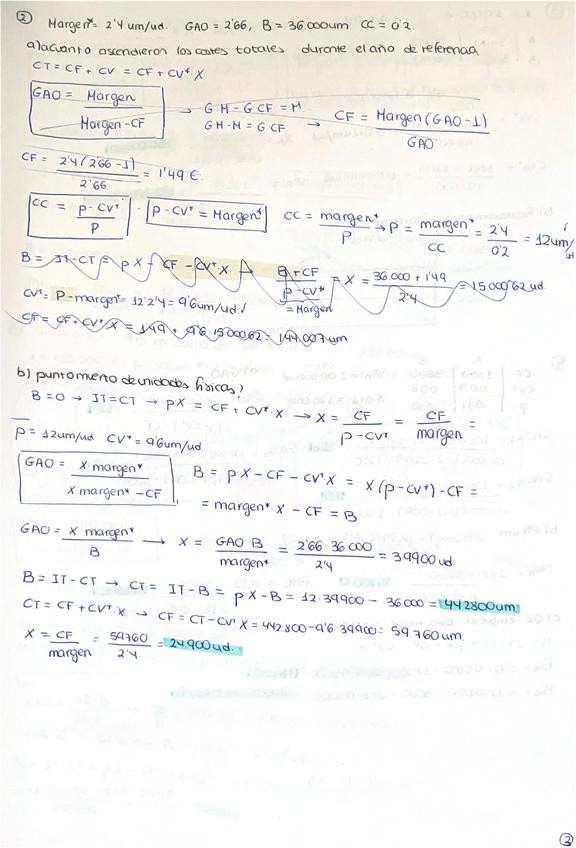 ② Margen* = 2'4 um/ud. GAO = 2'66, B = 36.000um CC = 0'2.
a) acuanto ascendieron los costes totales durante el año de referencia
CT = CF + CV = CF + CV* X
GAO = Margen / Margen - CF → G M - G CF = M
G M - M = G CF → CF = Margen (GAO - 1) / GAO
CF = 2'4 (2'66 - 1) / 2'66 = 1'49 €.
CC = P - CV* / P · P - CV* = Margen* CC = margen* / P → P = margen* / CC = 2'4 / 0'2 = 12um/ud
B = IT - CT = pX - CF - CV* X → B + CF / P - CV* = X = 36.000 + 1'49 / 2'4 = 15.000'62 ud.
= Margen
CV* = P - margen* = 12 - 2'4 = 9'6um/ud.
CT = CF + CV* X = 1'49 + 9'6 · 15000'62 = 144.007 um
b) punto muerto de unidades físicas,
B = 0 → IT = CT → pX = CF + CV* · X → X = CF / P - CV* = CF / margen =
P = 12um/ud CV* = 9'6um/ud.
GAO = X margen* / X margen* - CF B = pX - CF - CV* X = X (p - CV*) - CF =
= margen* · X - CF = B
GAO = X · margen* / B → X = GAO · B / margen* = 2'66 · 36.000 / 2'4 = 39900 ud.
B = IT - CT → CT = IT - B = pX - B = 12 · 39900 - 36.000 = 442800um
CT = CF + CV* · X → CF = CT - CV* X = 442.800 - 9'6 · 39900 = 59.760 um.
X = CF / margen = 59760 / 2'4 = 24.900 ud.
②